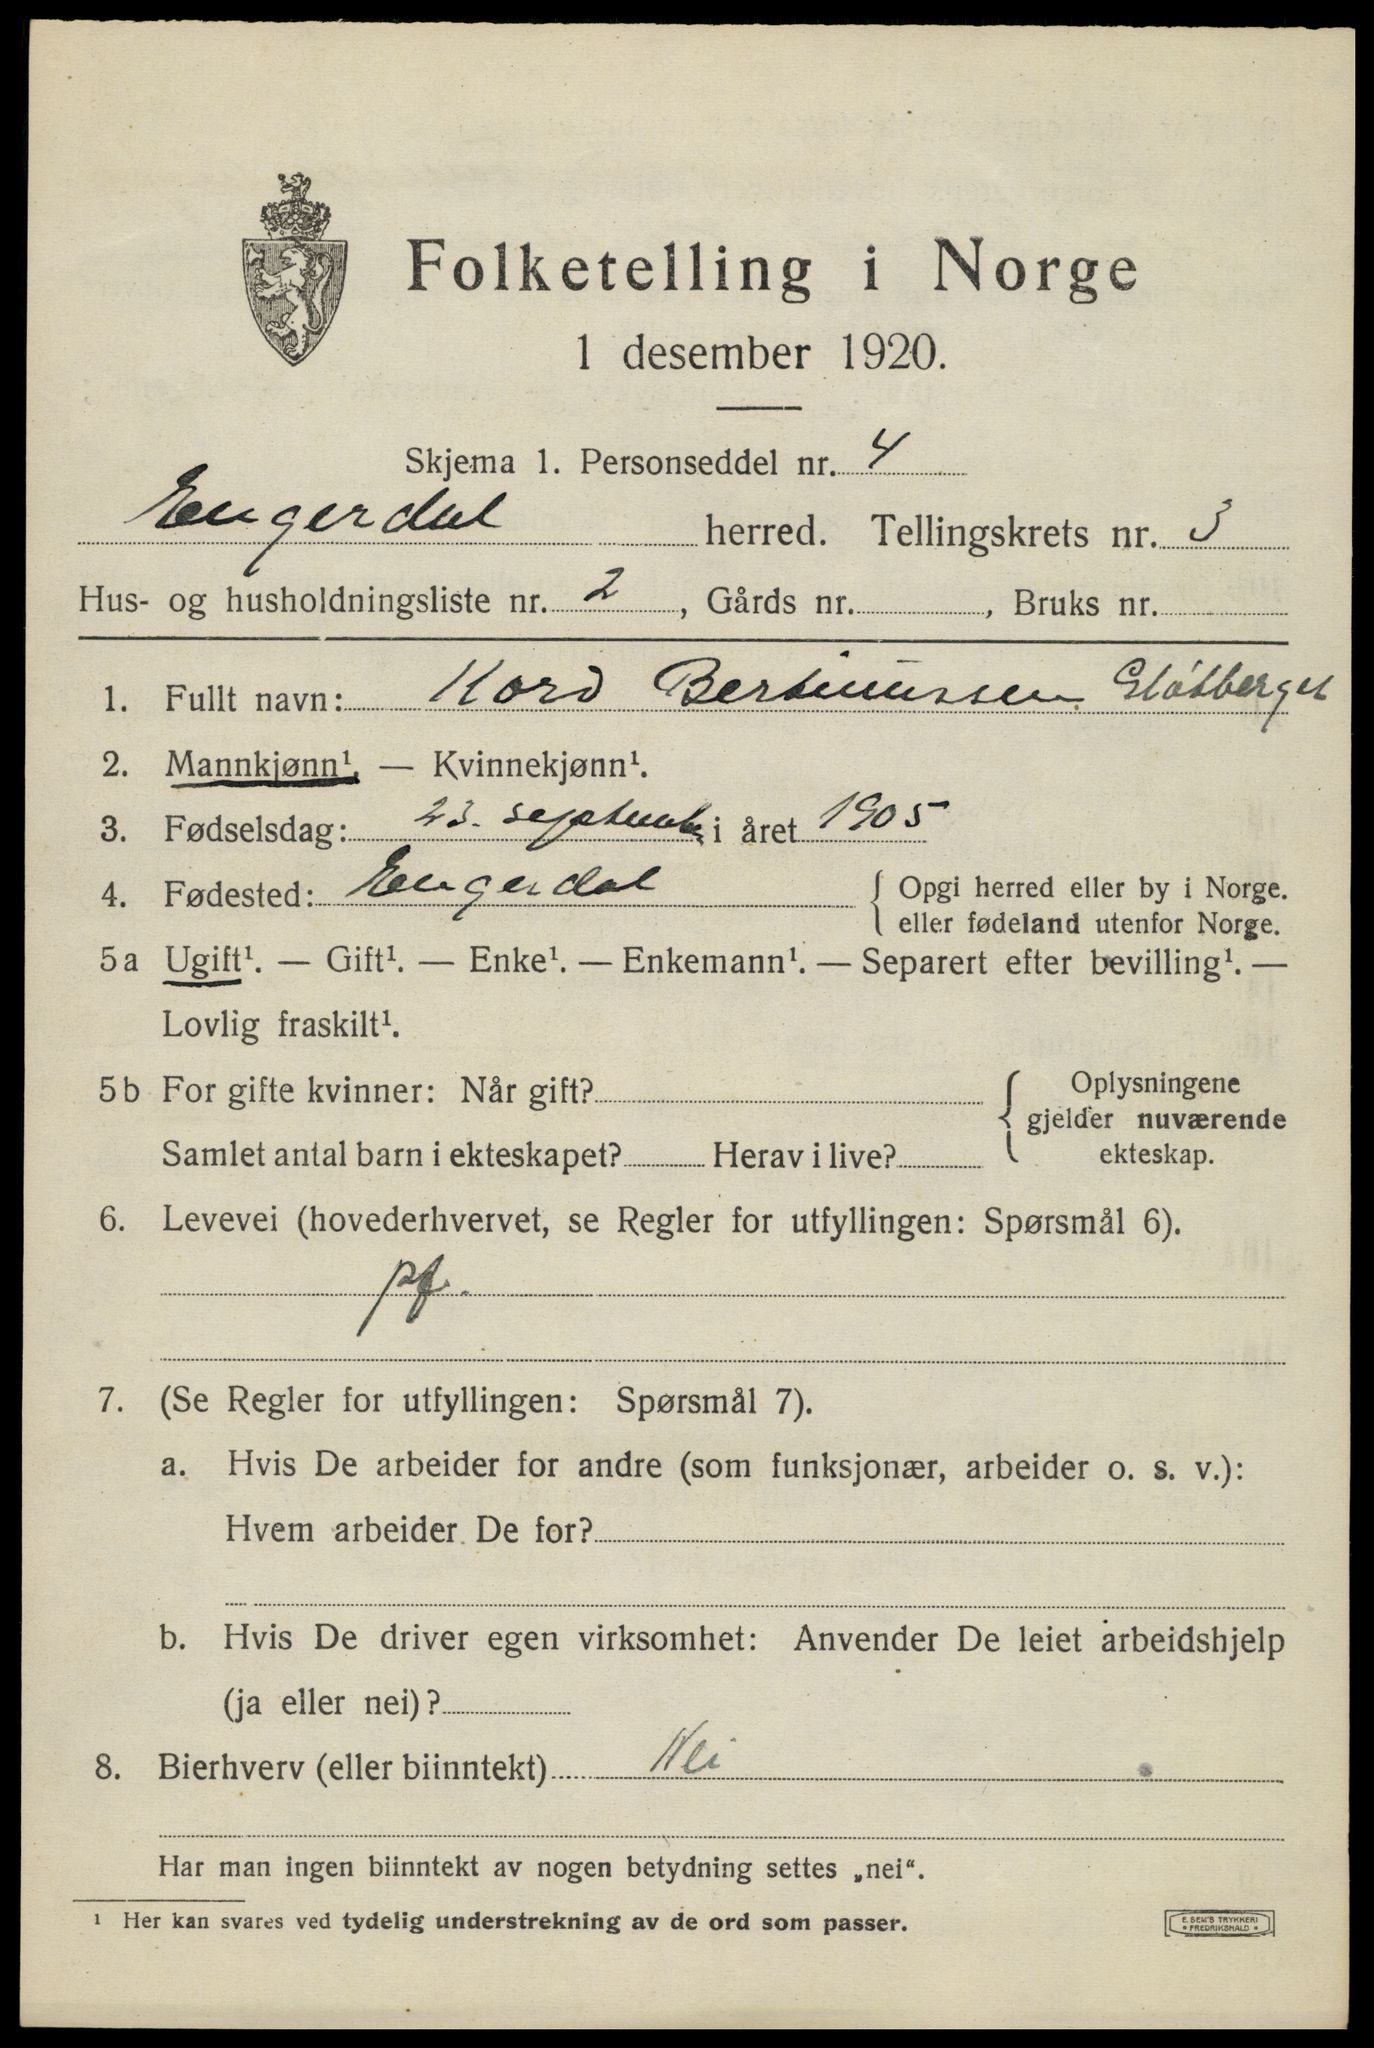 Folketelling i Norge
1 desember 1920.
Skjema 1. Personseddel nr. 4
Engerdal herred. Tellingskrets nr. 3
Hus- og husholdningsliste nr. 2, Gårds nr. , Bruks nr.
1. Fullt navn: Kord Bersvensen Gløtberget
2. Mannkjønn¹. — Kvinnekjønn¹.
3. Fødselsdag: 23. september i året 1905
4. Fødested: Engerdal { Opgi herred eller by i Norge.
eller fødeland utenfor Norge.
5a Ugift¹. — Gift¹. — Enke¹. — Enkemann¹. — Separert efter bevilling¹. —
Lovlig fraskilt¹.
5b For gifte kvinner: Når gift? { Oplysningene
gjelder nuværende
Samlet antal barn i ekteskapet? Herav i live? ekteskap.
6. Levevei (hovederhvervet, se Regler for utfyllingen: Spørsmål 6).
pf.
7. (Se Regler for utfyllingen: Spørsmål 7).
a. Hvis De arbeider for andre (som funksjonær, arbeider o. s. v.):
Hvem arbeider De for?
b. Hvis De driver egen virksomhet: Anvender De leiet arbeidshjelp
(ja eller nei)?
8. Bierhverv (eller biinntekt) Nei
Har man ingen biinntekt av nogen betydning settes „nei“.
¹ Her kan svares ved tydelig understrekning av de ord som passer.
E. SEM'S TRYKKERI
• FREDRIKSHALD •